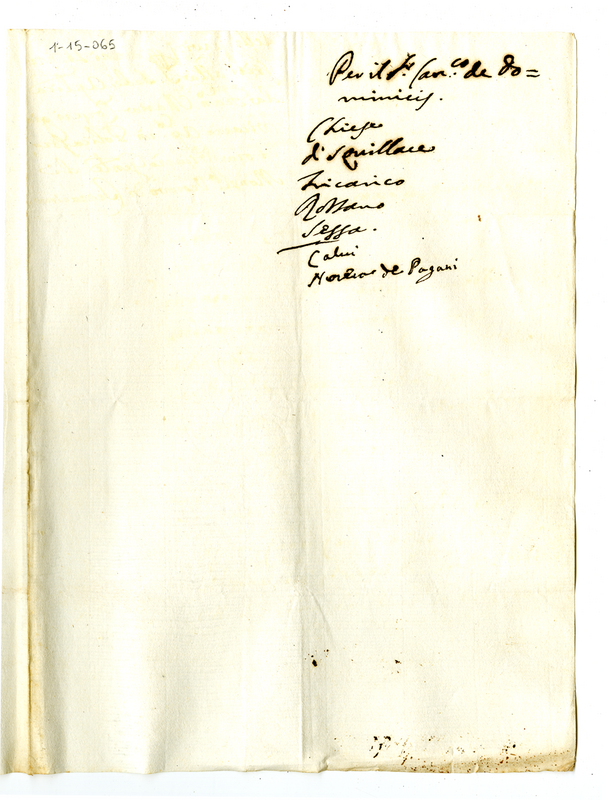 1-15-065
Per il Sr. Can.co de Do=
minicis.
Chiese
di Squillace
Tricarico
Rossano
Sessa.
Calvi
Nocera de Pagani